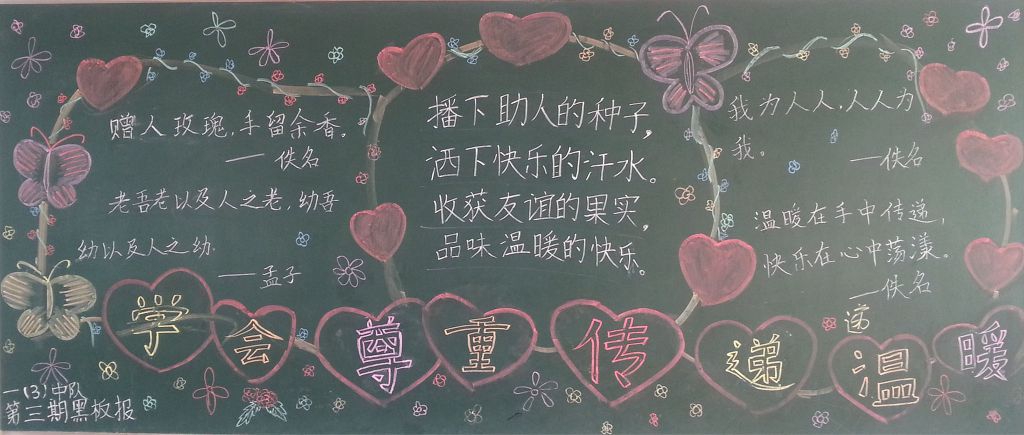 赠人玫瑰,手留余香。
——佚名
老吾老以及人之老,幼吾
幼以及人之幼.
——孟子
播下助人的种子,
洒下快乐的汗水。
收获友谊的果实,
品味温暖的快乐。
我为人人,人人为
我。 ——佚名
温暖在手中传递,
快乐在心中荡漾。
——佚名
递
学会尊重传递温暖
一(3)中队
第三期黑板报